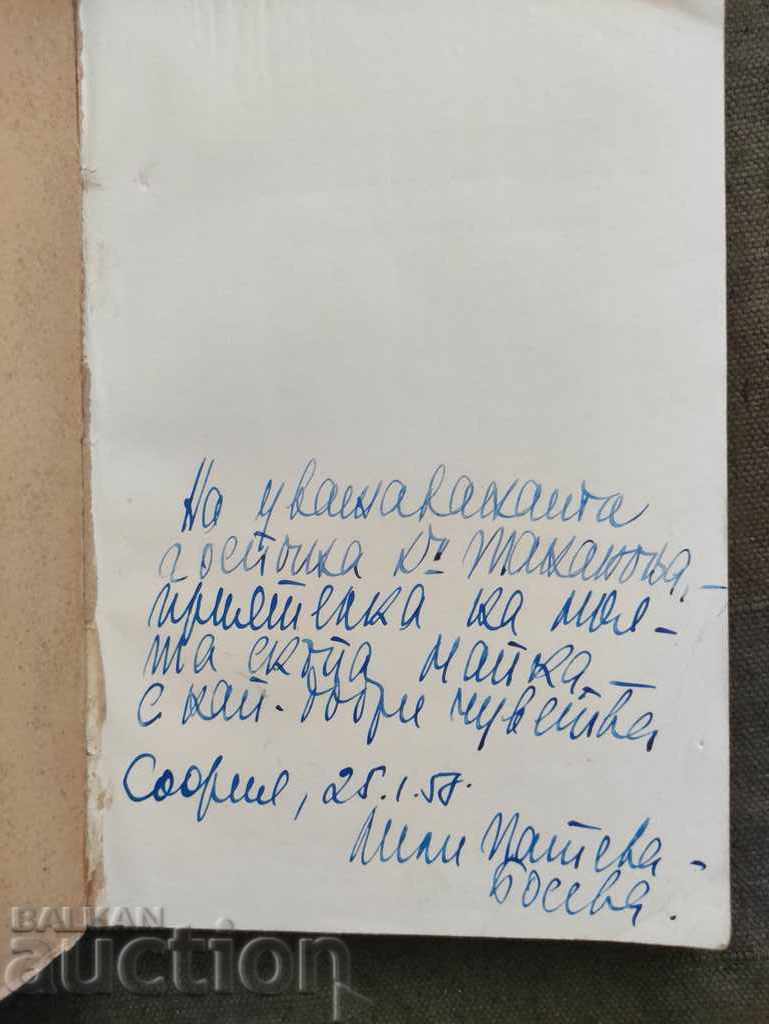 На уважаваната
гостенка Д-р Жаханова, –
приятелка на моя-
та скъпа майка –
с най-добри чувства
София, 25.I.58.
Лили Патева -
Босева.
BALKAN
auction